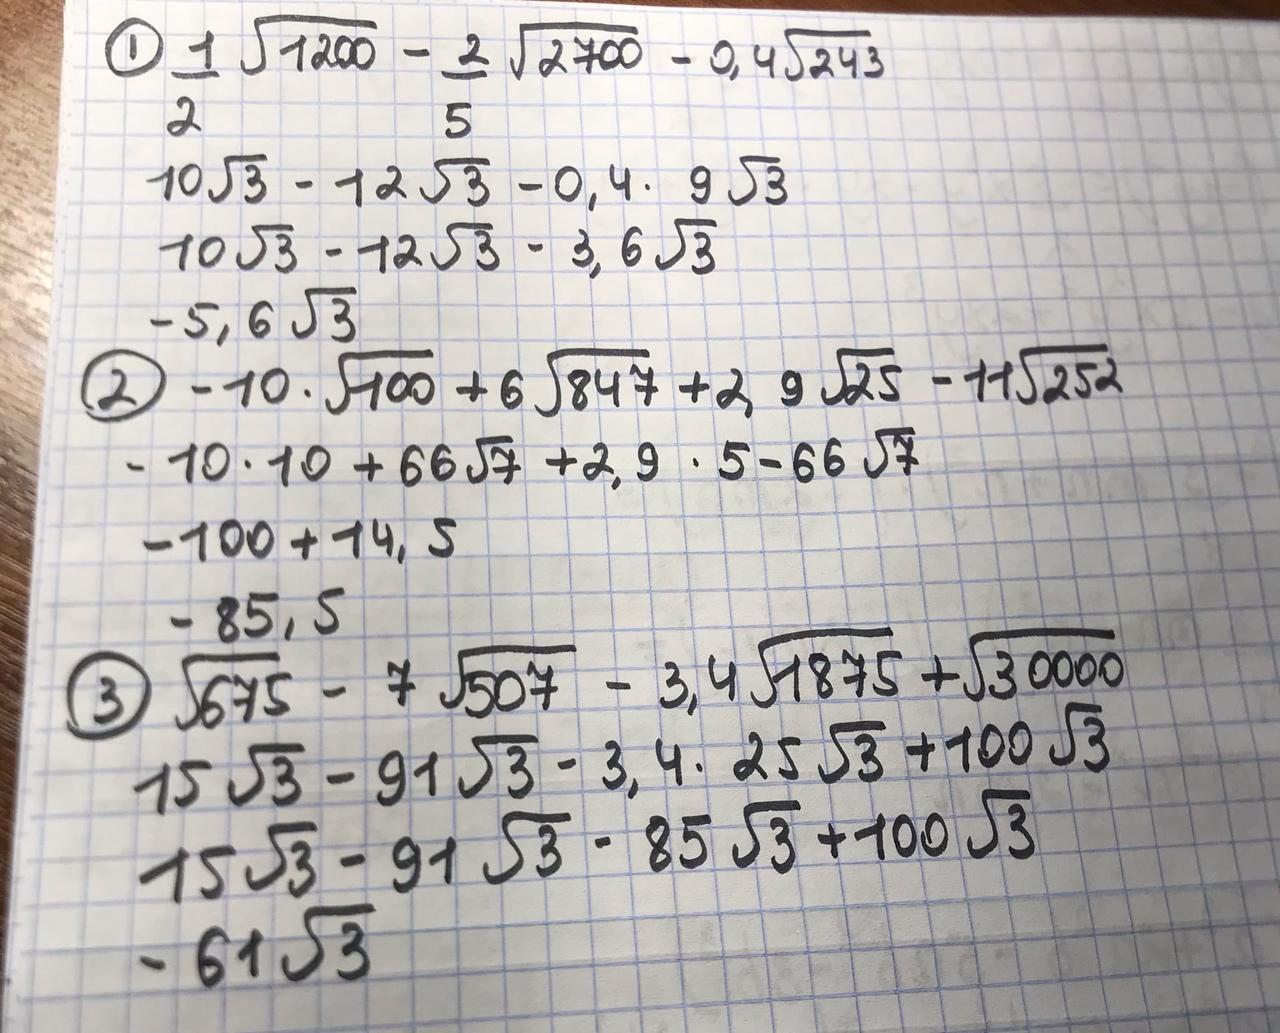 ① 1/2 √1200 - 2/5 √2700 - 0,4√243
10√3 - 12√3 - 0,4 · 9√3
10√3 - 12√3 - 3,6√3
-5,6√3
② -10 · √100 + 6√847 + 2,9√25 - 11√252
-10 · 10 + 66√7 + 2,9 · 5 - 66√7
-100 + 14,5
-85,5
③ √675 - 7√507 - 3,4√1875 + √30000
15√3 - 91√3 - 3,4 · 25√3 + 100√3
15√3 - 91√3 - 85√3 + 100√3
-61√3